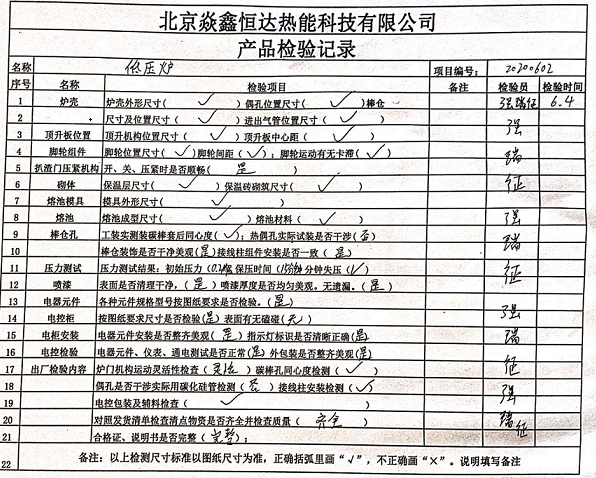 北京焱鑫恒达热能科技有限公司
产品检验记录
名称 低压炉 项目编号: 20200602
序号 名称 检验项目 备注 检验员 检验时间
1 炉壳 炉壳外形尺寸(✓)偶孔位置尺寸(✓)棒仓 强瑞征 6.4
2 尺寸及位置尺寸(✓)进出气管位置尺寸(✓) 强
3 顶升板位置 顶升机构位置尺寸(✓)顶升板中心距(✓)
4 脚轮组件 脚轮位置尺寸(✓)脚轮间距(✓);脚轮运动有无卡滞(✓) 瑞
5 扒渣门压紧机构 开、关、压紧时是否顺畅(是)
6 砌体 保温层尺寸(✓)保温砖砌筑尺寸(✓) 征
7 熔池模具 模具外形尺寸(✓)
8 熔池 熔池成型尺寸(✓)熔池材料(✓) 强
9 棒仓孔 工装实测装碳棒套后同心度(✓);热偶孔实际试装是否干涉(否) 瑞
10 棒仓装饰是否干净美观(是)接线柱组件安装是否一致(是)
11 压力测试 压力测试结果:初始压力(0.2)保压时间(15分钟)分钟失压(✓) 征
12 喷漆 表面是否清理干净,(是)喷漆厚度是否均匀美观。无遗漏。(是)
13 电器元件 各种元件规格型号按图纸要求是否检验。(是)
14 电控柜 按图纸要求尺寸是否检验(是)表面有无磕碰(无) 强
15 电柜安装 电器元件安装是否整齐美观(是)指示灯标识是否清晰正确(是) 瑞
16 电控检验 电器元件、仪表、通电测试是否正常(是)外包装是否整齐美观(是)
17 出厂检验内容 炉门机构运动灵活性检查(灵活)碳棒孔同心度检测(✓) 征
18 偶孔是否干涉实际用碳化硅管检测(否)接线柱安装检测(✓)
19 电控包装及辅料检查(✓) 强
20 对照发货清单检查清点物资是否齐全并检查质量(齐全) 瑞征
21 合格证、说明书是否完整(完整);
22 备注:以上检测尺寸标准以图纸尺寸为准,正确括弧里画“√”,不正确画“×”。说明填写备注